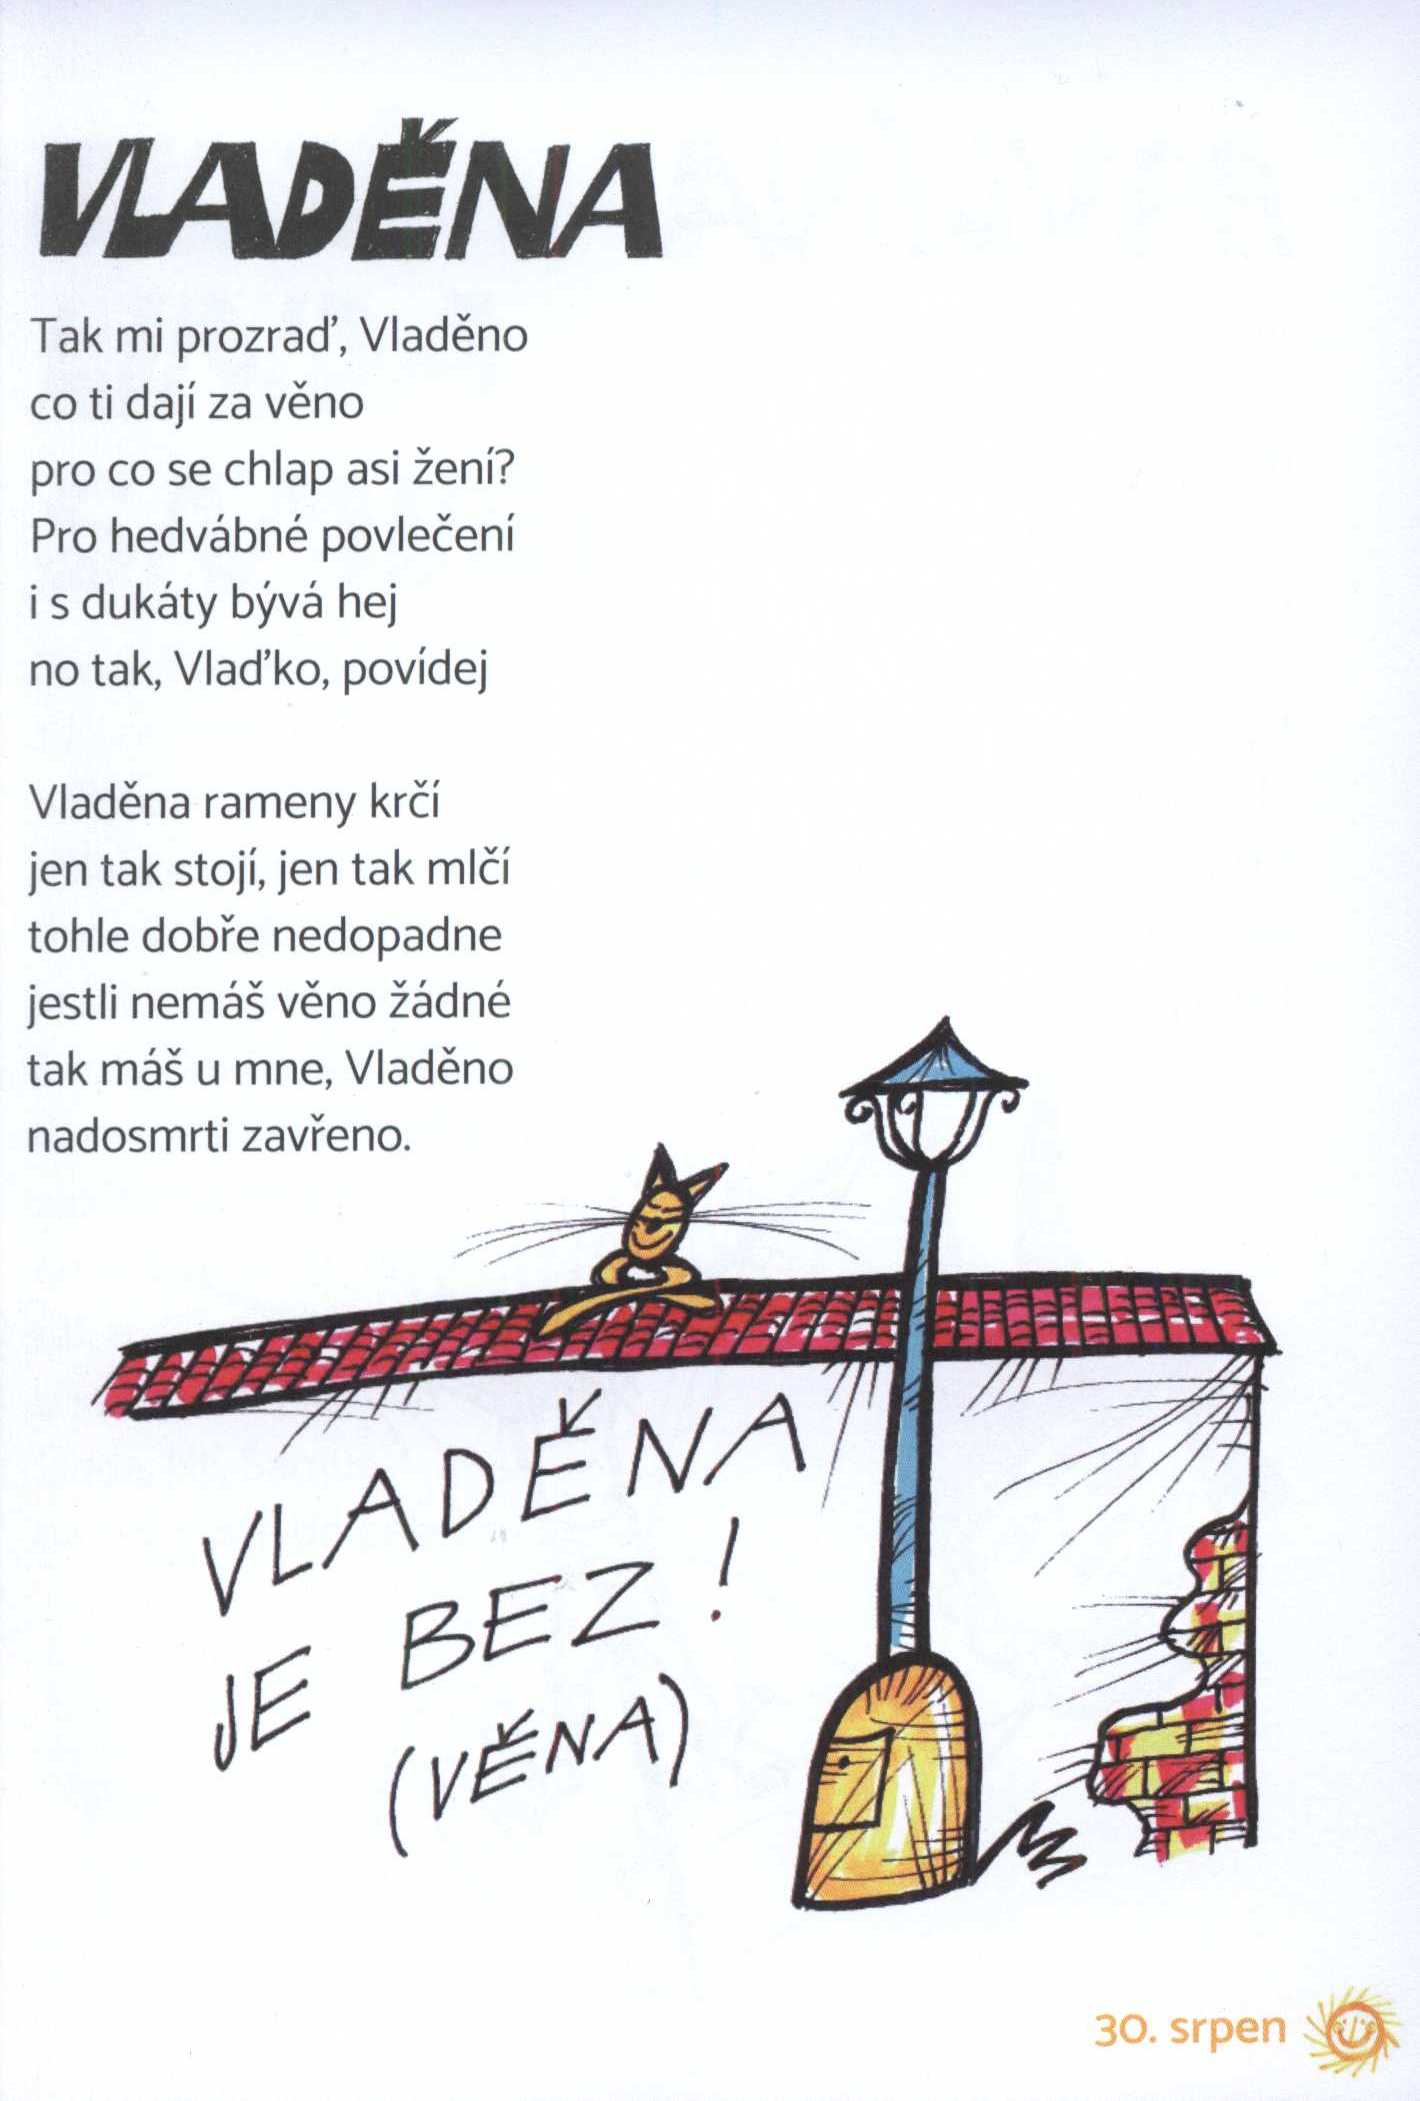 VLADĚNA
Tak mi prozraď, Vladěno
co ti dají za věno
pro co se chlap asi žení?
Pro hedvábné povlečení
i s dukáty bývá hej
no tak, Vlaďko, povídej
Vladěna rameny krčí
jen tak stojí, jen tak mlčí
tohle dobře nedopadne
jestli nemáš věno žádné
tak máš u mne, Vladěno
nadosmrti zavřeno.
VLADĚNA
JE BEZ!
(VĚNA)
30. srpen